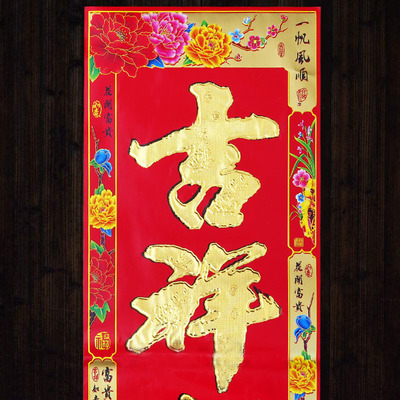 吉祥
一帆風順
花開富貴
花開富貴
富貴